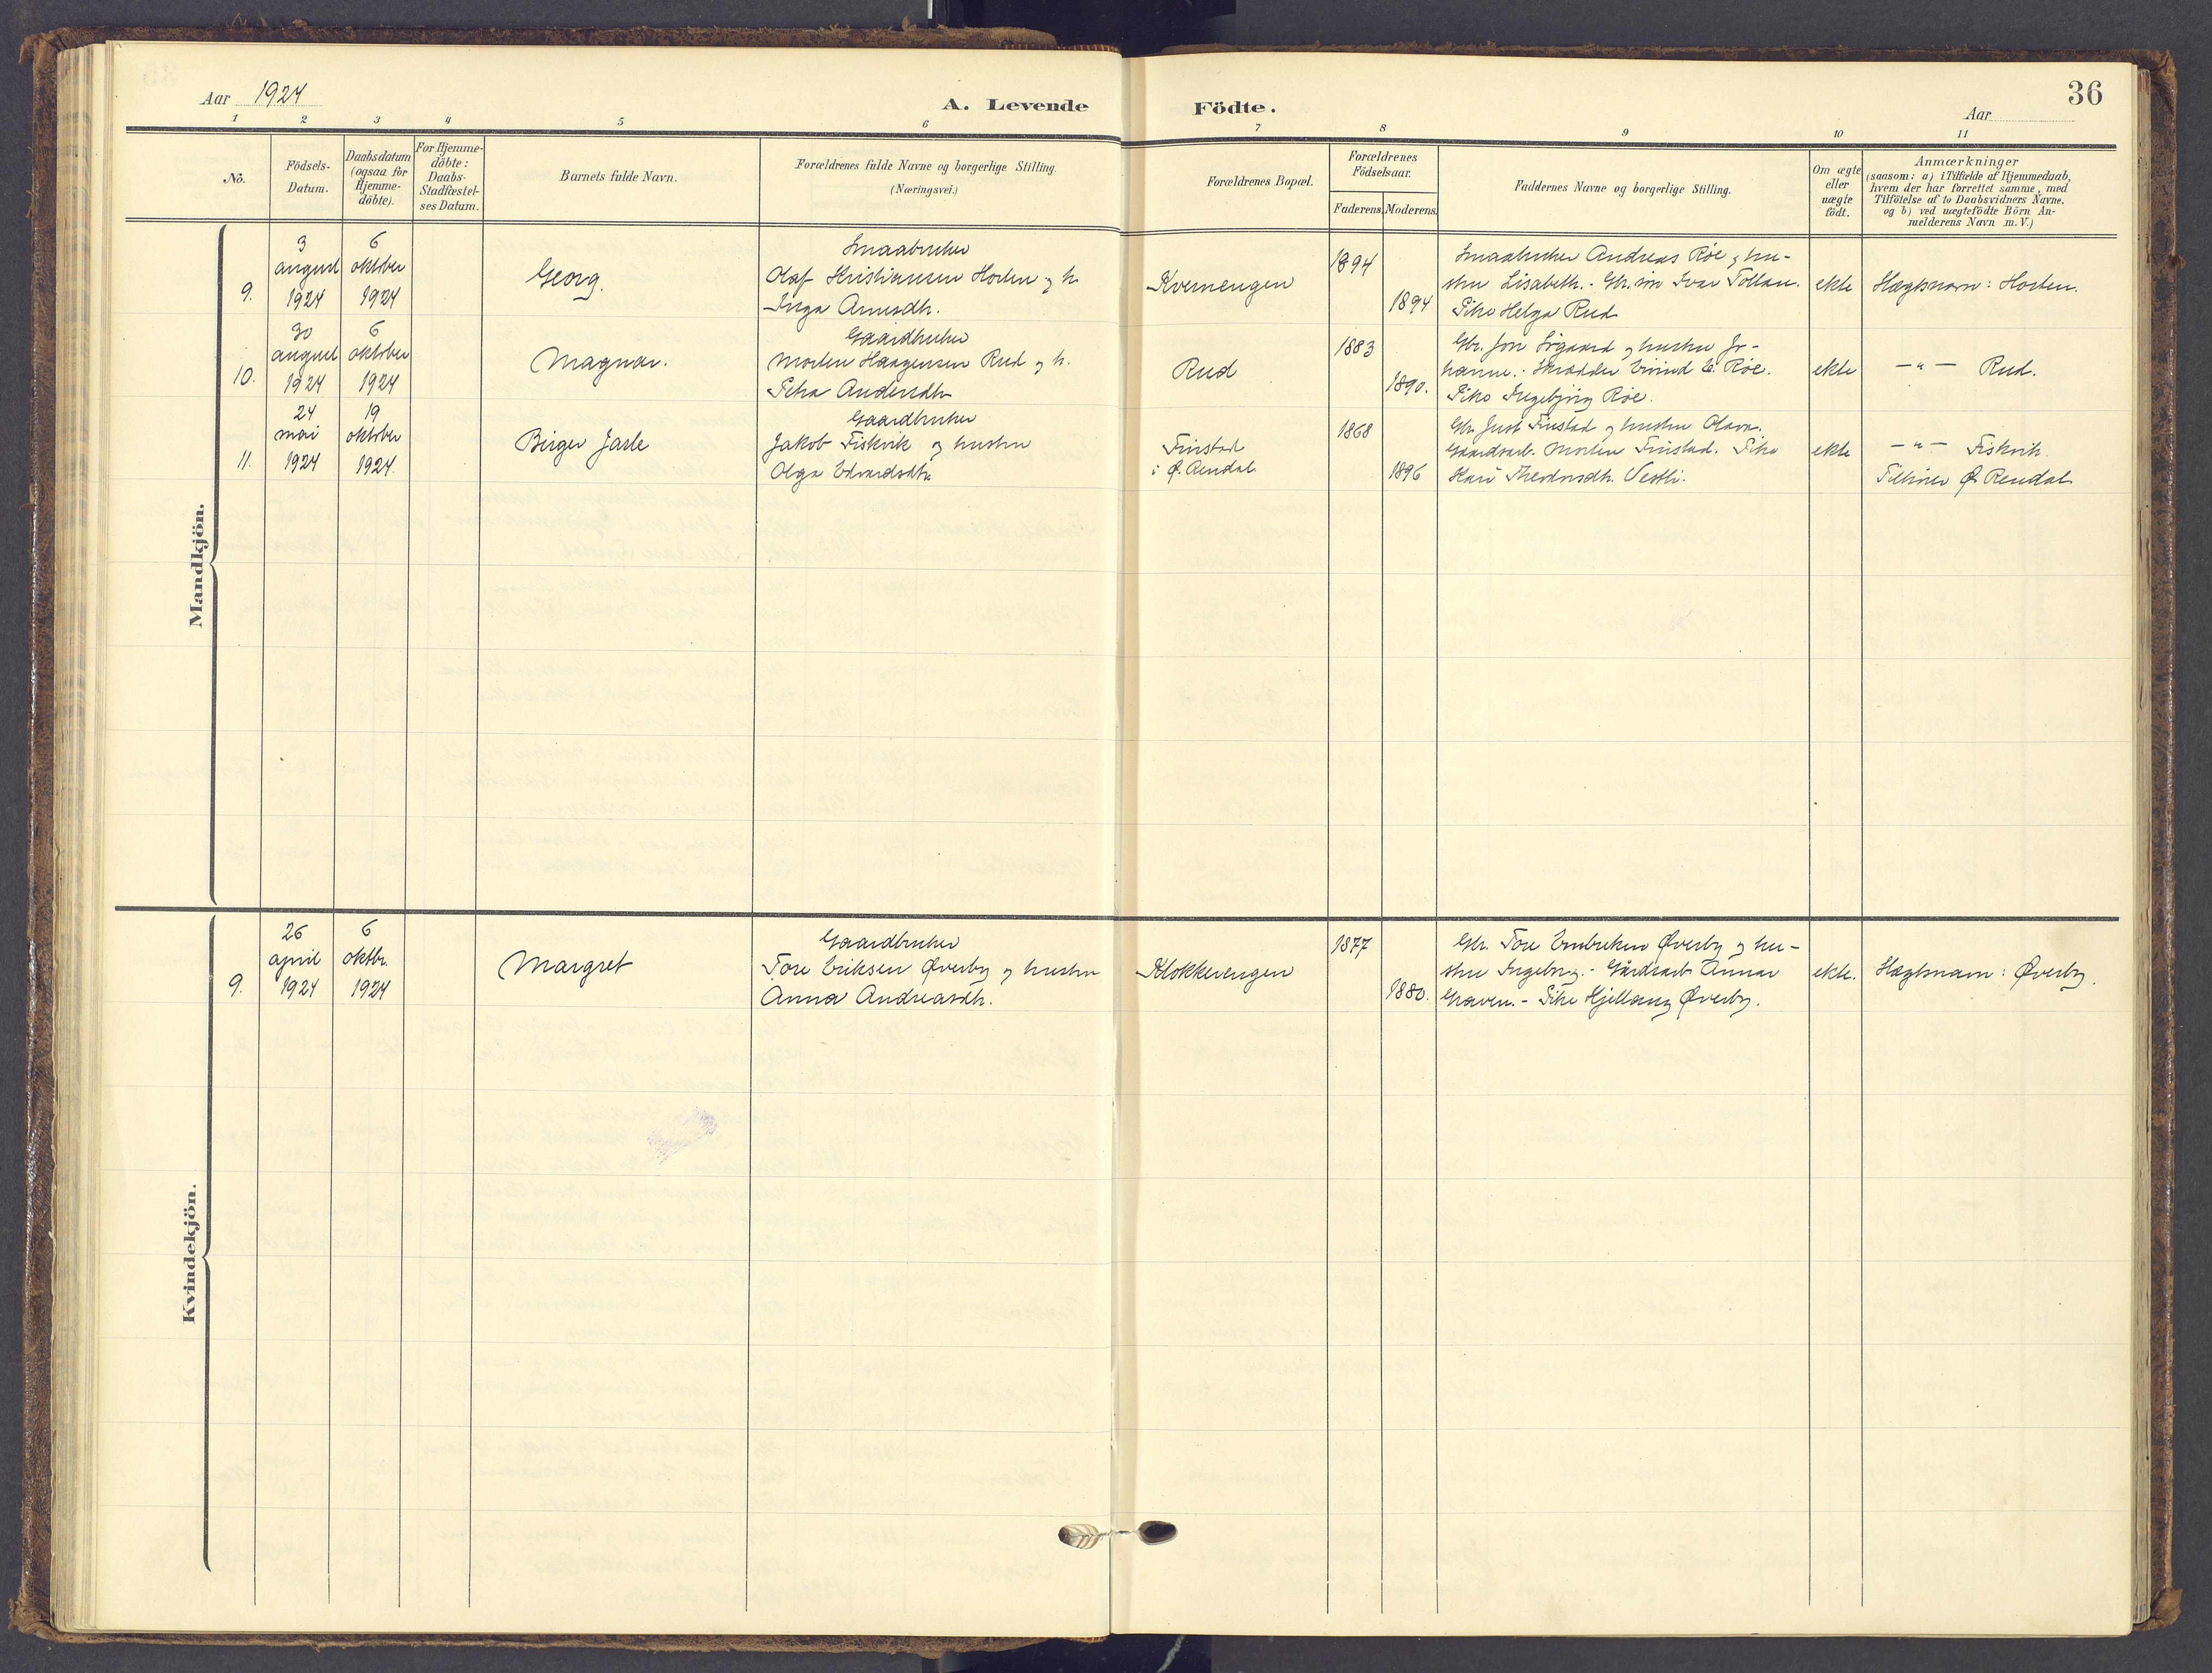 Aar 1924
A. Levende Födte.
Aar
36
1 2 3 4 5 6 7 8 9 10 11
No.
Födsels-
Datum.
Daabsdatum
(ogsaa for
Hjemme-
döbte).
For Hjemme-
döbte:
Daabs-
Stadfæstel-
ses Datum.
Barnets fulde Navn.
Forældrenes fulde Navne og borgerlige Stilling.
(Næringsvei.)
Forældrenes Bopæl.
Forældrenes
Födselsaar.
Faderens.
Moderens.
Faddernes Navne og borgerlige Stilling.
Om ægte
eller
uægte
födt.
Anmærkninger
(saasom: a) i Tilfælde af Hjemmedaab,
hvem der har forrettet samme, med
Tilföielse af to Daabsvidners Navne.
og b) ved uægtefödte Börn An-
melderens Navn m. V.)
Mandkjön.
9.
3
august
1924
6
oktober
1924
Georg.
Smaabruker
Olaf Kristiansen Horten og h.
Inga Arnesdtr.
Kvernengen
1894
1894
Smaabruker Andreas Röe og hu-
stru Lisabeth. - Gbr. sön Ivar Tollan.
Pike Helga Rud
ekte
Slægtsnavn: Horten.
10.
30
august
1924
6
oktober
1924
Magnar.
Gaardbruker
Morten Haagensen Rud og h.
Petra Andersdtr
Rud
1883
1890.
Gbr. Jon Sögaard og hustru Jo-
hanne. - Skrædder Eivind E. Röe.
Pike Ingebjörg Röe.
ekte
— " — Rud.
11.
24
mai
1924
19
oktober
1924
Birger Jarle
Gaardbruker
Jakob Fiskvik og hustru
Olga Edvardsdtr
Finstad
i Ø. Rendal
1868
1896
Gbr. Just Finstad og hustru Olava.
Gaardsarb. Morten Finstad. Pike
Kari Theodorsdtr. Vestli.
ekte
— " — Fiskvik.
Tilhörer Ø. Rendal
Kvindekjön.
9.
26
april
1924
6
oktbr.
1924
Margret
Gaardbruker
Tore Eriksen Øverby og hustru
Anna Andreasdtr.
Klokkerengen
1877
1880.
Gbr. Tore Embretsen Øverby og hu-
stru Ingeborg. - Gårdsarb. Annar
Haven. - Pike Kjellaug Øverby.
ekte.
Slægtsnavn: Øverby.